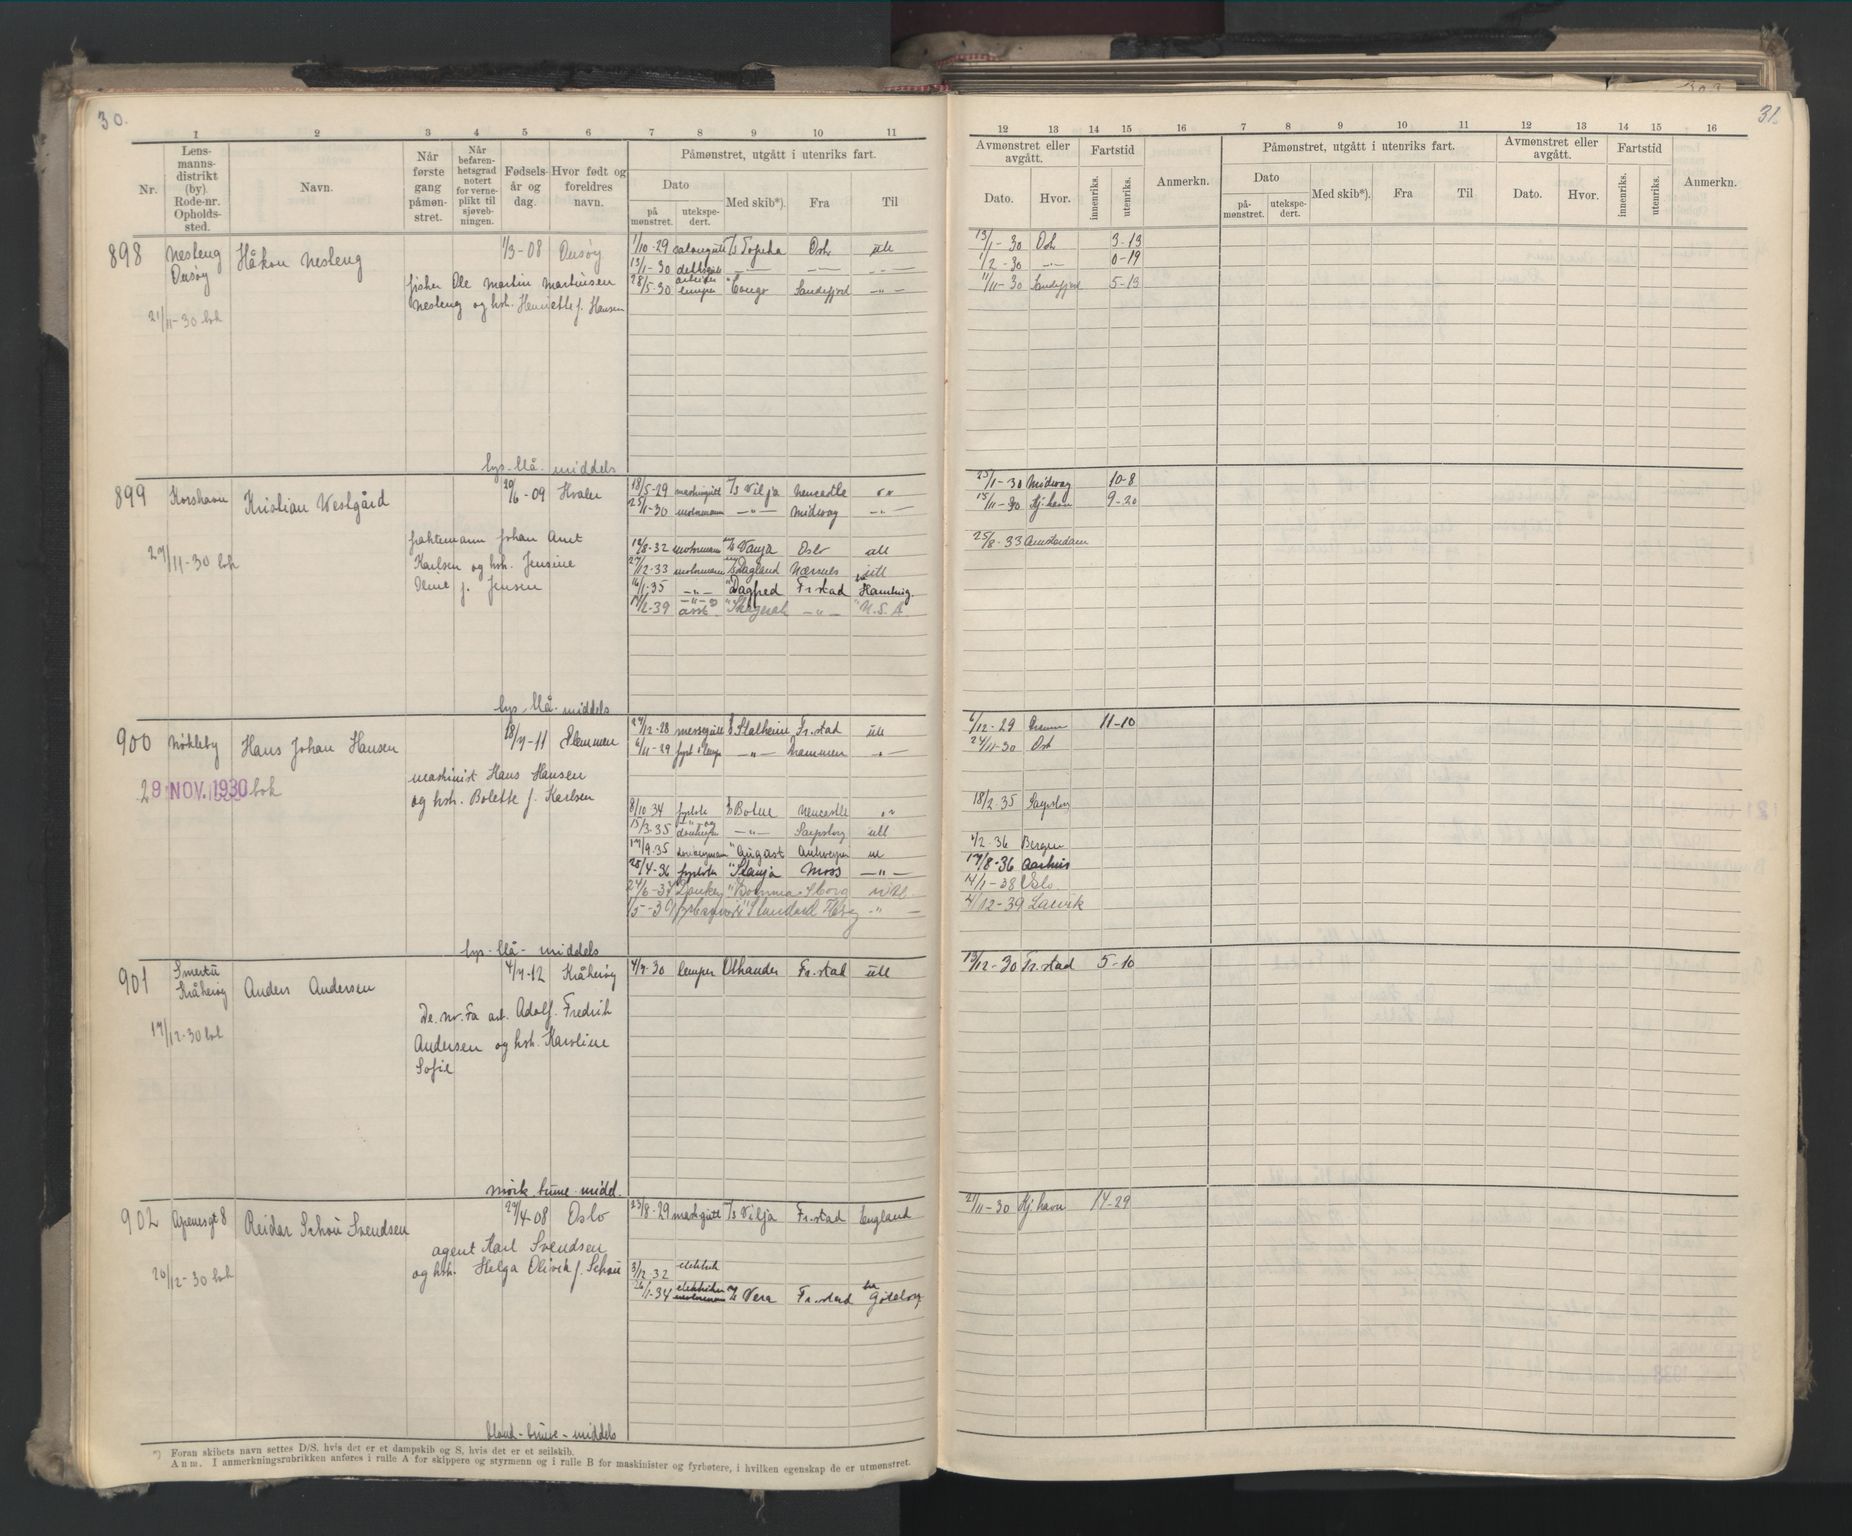 30.
1 2 3 4 5 6 7 8 9 10 11
Nr.
Lens-
manns-
distrikt
(by).
Rode-nr.
Opholds-
sted.
Navn.
Når
første
gang
påmøn-
stret.
Når
befaren-
hetsgrad
notert
for verne-
plikt til
sjøveb-
ningen.
Fødsels-
år og
dag.
Hvor født og
foreldres
navn.
Påmønstret, utgått i utenriks fart.
Dato
på
mønstret.
utekspe-
dert.
Med skib*).
Fra
Til
898 Nesteng Håkon Nesteng 1/3-08 Onsøy 1/10-29 salongutt Topeka Oslo utl
Onsøy 13/1-30 -"- -"- -"-
fisker Ole Martin Martinsen 28/5-30 lemper "Congo Sandefjord -"-
Nesteng og hst. Henriette f. Hansen
21/11-30 bok
lys-blå-middels
899 Korshavn Kristian Westgård 20/6-09 Hvaler 18/5-29 maskingutt M/S Vilja Newcastle
25/1-30 motormann -"- Midway -"-
fraktemann Johan Amt
27/11-30 bok Karlsen og hst. Jensine 12/8-32 motormann M/S Vanja Oslo utl
27/12-33 motormann Dagland utl
f. Jensen 16/1-35 -"- "Dagfred Fr.stad Hamburg.
17/2-39 asst "Skagerak -"- "U.S.A
lys-blå-middels
900 Nøkleby Hans Johan Hansen 18/7-11 Glemmen 27/12-28 messegutt Stalheim Fr.stad utl
6/11-29 -"- Drammen -"-
maskinist Hans Hansen
29 NOV. 1930 bok og hst. Bolette f. Karlsen 8/10 34 fyrbøter Newcastle
15/3-35 -"- Sarpsborg utl
17/9-35 donkeymann "August Antwerpen ut
25/4-36 fyrbøter "Stanja Moss -"-
24/6-37 Donkey "Bomma S.borg utl
1/5-39 "Standard -"-
lys-blå-middels
901 Smertu Anders Andersen 4/7-12 Kråkerøy 4/7-30 lemper Fr.stad utl
Kråkerøy
Adolf Fredrik
17/12-30 bok Andersen og hst. Karoline
Sofie
mørk brune-middel.
902 Agenesgt 8 Reidar Schou Svendsen 27/4-08 Oslo 23/8-29 maskingutt M/S Vilja Fr.stad England
agent Karl Svendsen
20/12-30 bok og hst. Helga Olivia f. Schou 3/12 32
26/1-34 elektriker motormann M/S Vera Fr.stad Göteborg
blond-brune-middels
*) Foran skibets navn settes D/S. hvis det er et dampskib og S, hvis det er et seilskib.
Anm. I anmerkningsrubrikken anføres i rulle A for skippere og styrmenn og i rulle B for maskinister og fyrbøtere, i hvilken egenskap de er utmønstret.
31.
12 13 14 15 16 7 8 9 10 11 12 13 14 15 16
Avmønstret eller
avgått.
Fartstid
Dato.
Hvor.
innenriks.
utenriks.
Anmerkn.
Påmønstret, utgått i utenriks fart.
Dato
på-
mønstret.
utekspe-
dert.
Med skib*)
Fra
Til
Avmønstret eller
avgått.
Fartstid
Dato.
Hvor.
innenriks.
utenriks.
Anmerkn.
13/1-30 Oslo 3-13
1/2-30 -"- 0-19
11/11-30 Sandefjord 5-13
25/1-30 Midway 10-8
15/11-30 Kj.havn 9-20
25/8-33 Amsterdam
6/12-29 11-10
24/11-30 Osl
18/2-35 Sarpsborg
1/2-36 Bergen
17/8-36 Aarhus
14/1-38 Oslo
4/12-39 Larvik
13/12-30 Fr.stad 5-10
21/11-30 Kj.havn 14-29